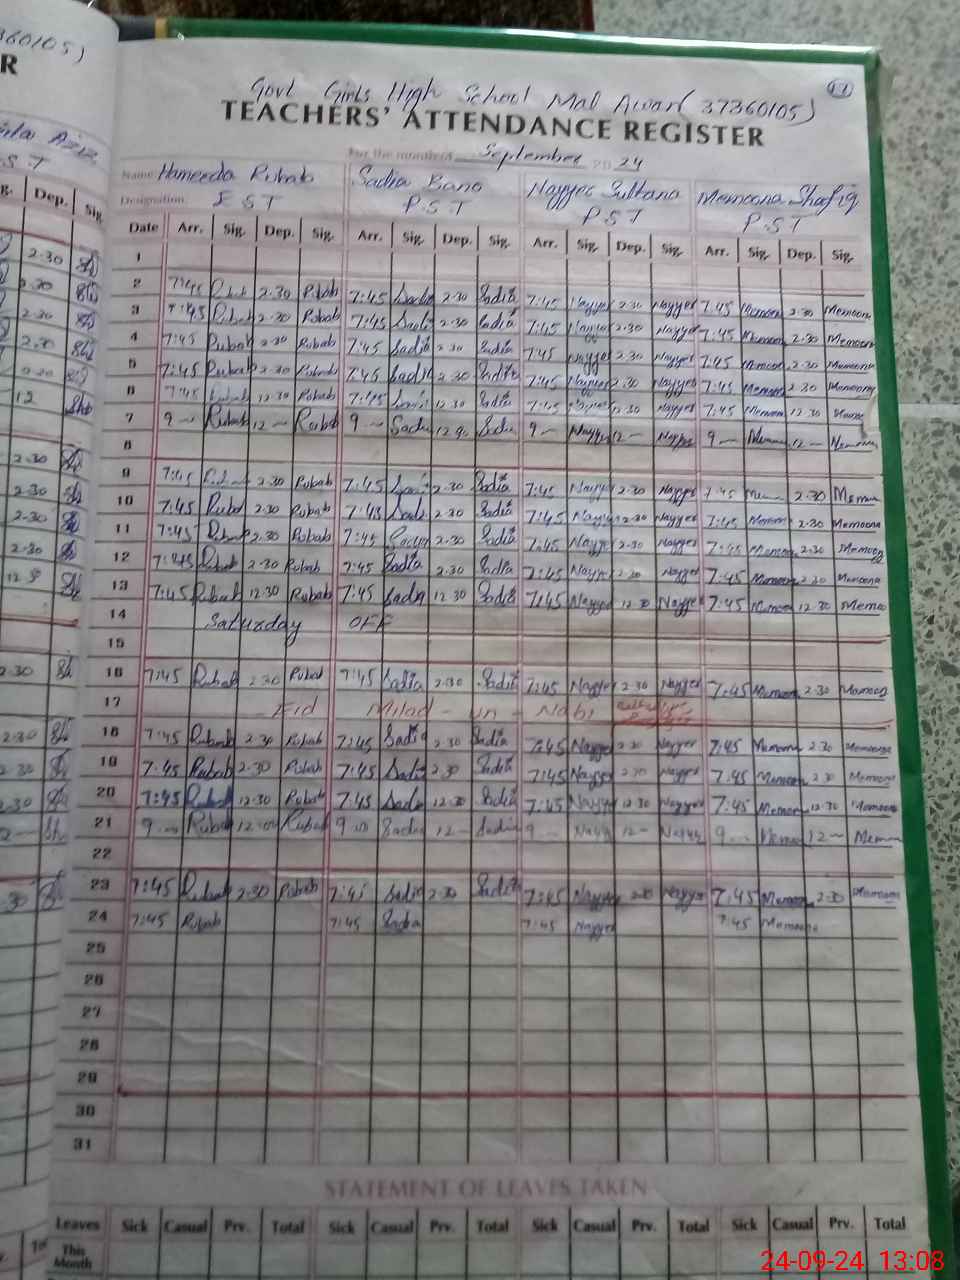 360105)
R
S T
g. Dep. Sig.
2.30
2.30
2.30
2.30
12
2.30
2.30
2-30
2.30
2.30
2.30
2.30
Govt Girls High School Mal Awan (37360105)
TEACHERS' ATTENDANCE REGISTER
For the month of September 2024
Name Hameeda Rubab Sadia Bano Nayyer Sultana Memoona Shafiq
Designation E S T P.S T P.S T P.S T
Date Arr. Sig. Dep. Sig. Arr. Sig. Dep. Sig. Arr. Sig. Dep. Sig. Arr. Sig. Dep. Sig.
1
2 7:45 Rubab 2.30 Rubab 7:45 Sadia 2.30 Sadia 7:45 Nayyer 2.30 Nayyer 7:45 Memoona 2.30 Memoona
3 7:45 Rubab 2.30 Rubab 7:45 Sadia 2.30 Sadia 7:45 Nayyer 2.30 Nayyer 7:45 Memoona 2.30 Memoona
4 7:45 Rubab 2.30 Rubab 7:45 Sadia 2.30 Sadia 7:45 Nayyer 2.30 Nayyer 7:45 Memoona 2.30 Memoona
5 7:45 Rubab 2.30 Rubab 7:45 Sadia 2.30 Sadia 7:45 Nayyer 2.30 Nayyer 7:45 Memoona 2.30 Memoona
6 7:45 Rubab 12.30 Rubab 7:45 Sadia 12.30 Sadia 7:45 12.30 Nayyer 7:45 Memoona 12.30
7 9 Rubab 12 Rubab 9 Sadia 12 Sadia 9 Nayyer 12 Nayyer 9 12
8
9 7:45 2.30 Rubab 7:45 2.30 Sadia 7:45 Nayyer 2.30 Nayyer 7:45 2.30
10 7:45 Rubab 2.30 Rubab 7:45 Sadia 2.30 Sadia 7:45 Nayyer 2.30 Nayyer 7:45 Memoona 2.30 Memoona
11 7:45 Rubab 2.30 Rubab 7:45 2.30 Sadia 7:45 Nayyer 2.30 Nayyer 7:45 Memoona 2.30 Memoona
12 7:45 Rubab 2.30 Rubab 7:45 Sadia 2.30 Sadia 7:45 Nayyer 2.30 Nayyer 7:45 Memoona 2.30 Memoona
13 7:45 Rubab 12.30 Rubab 7:45 Sadia 12.30 Sadia 7:45 Nayyer 12.30 Nayyer 7:45 12.30 Memoona
14 Saturday OFF
15
16 7:45 Rubab 2.30 Rubab 7:45 Sadia 2.30 Sadia 7:45 Nayyer 2.30 Nayyer 7:45 Memoona 2.30 Memoona
17 Eid Milad - un - Nabi
18 7:45 Rubab 2.30 Rubab 7:45 Sadia 2.30 Sadia 7:45 Nayyer 2.30 Nayyer 7:45 Memoona 2.30 Memoona
19 7:45 Rubab 2.30 Rubab 7:45 Sadia 2.30 Sadia 7:45 Nayyer 2.30 Nayyer 7:45 Memoona 2.30 Memoona
20 7:45 Rubab 12.30 Rubab 7:45 Sadia 12.30 Sadia 7:45 Nayyer 12.30 Nayyer 7:45 Memoona 12.30 Memoona
21 9 Rubab 12 Rubab 9 Sadia 12 Sadia 9 12 9 12
22
23 7:45 Rubab 2.30 Rubab 7:45 Sadia 2.30 Sadia 7:45 Nayyer 2.30 Nayyer 7:45 Memoona 2.30 Memoona
24 7:45 Rubab 7:45 Sadia 7:45 Nayyer 7:45 Memoona
25
26
27
28
29
30
31
STATEMENT OF LEAVES TAKEN
Leaves Sick Casual Prv. Total Sick Casual Prv. Total Sick Casual Prv. Total Sick Casual Prv. Total
This Month
24-09-24 13:08